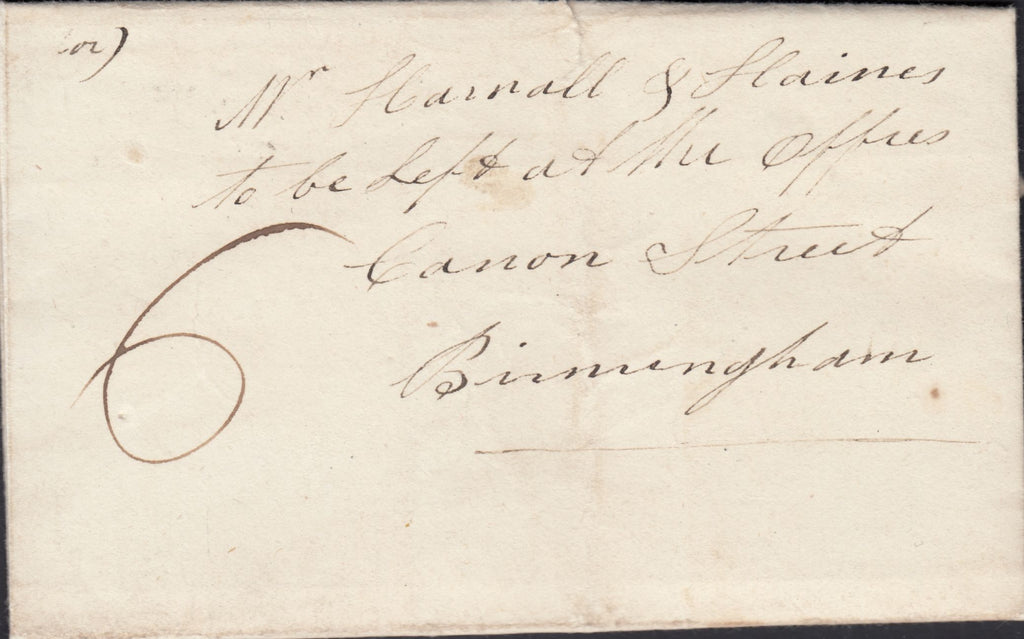 Mr Harnall & Haines
to be Left at the Offices
Canon Street
6
Birmingham